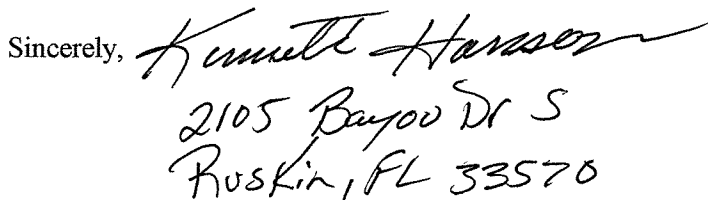 Sincerely, Kenneth Hanson
2105 Bayou Dr S
Ruskin, FL 33570